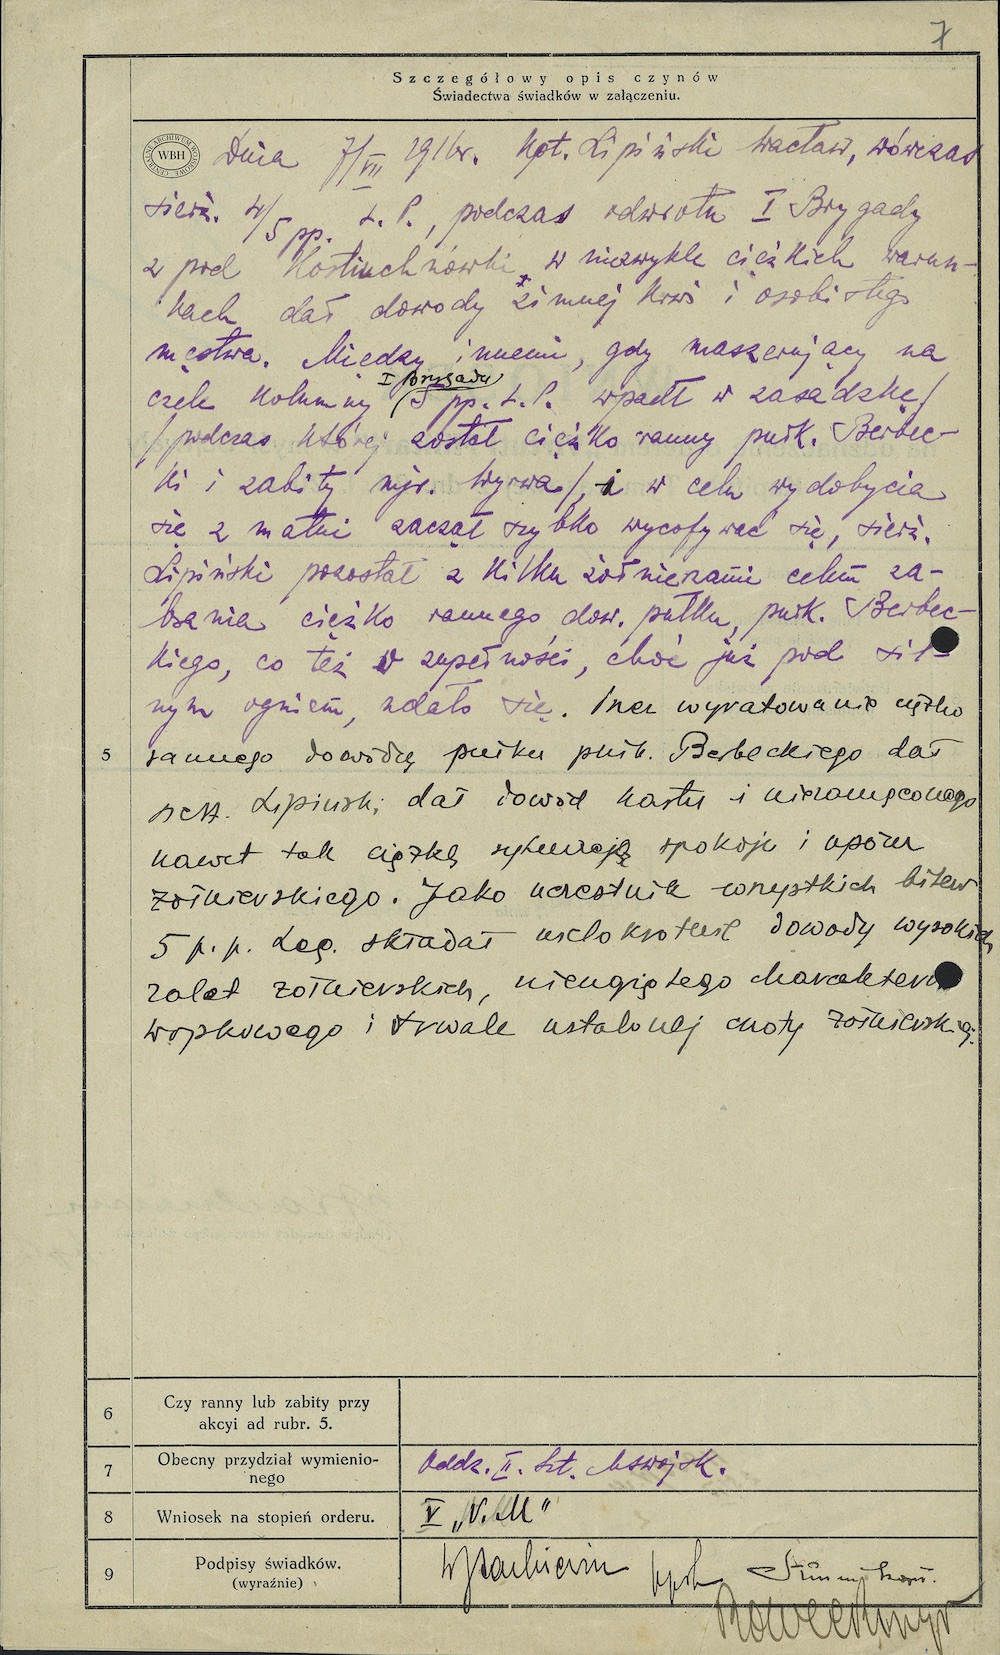 7
Szczegółowy opis czynów
Świadectwa świadków w załączeniu.
CENTRALNE ARCHIWUM WOJSKOWE
WBH
Dnia 7/VII 1916r. kpt. Lipiński Wacław, wówczas
sierż. 4/5 pp. L. P., podczas odwrotu I Brygady
z pod Kostiuchnówki, w niezwykle ciężkich warun-
kach dał dowody zimnej krwi i osobistego
męstwa. Między innemi, gdy maszerujący na
czele kolumny I Brygady 5 pp. L. P. wpadł w zasadzkę/
/podczas której został ciężko ranny pułk. Berbec-
ki i zabity mjr. Wyrwa/, i w celu wydobycia
się z matni zaczął szybko wycofywać się, sierż.
Lipiński pozostał z kilku żołnierzami celem za-
brania ciężko rannego dow. pułku, pułk. Berbec-
kiego, co też w zupełności, choć już pod sil-
nym ogniem, udało się. Przez wyratowanie ciężko
5
rannego dowódcy pułku pułk. Berbeckiego dał
sierż. Lipiński dał dowód hartu i niezamąconego
nawet tak ciężką sytuacją spokoju i uporu
żołnierskiego. Jako uczestnik wszystkich bitew
5 p. p. Leg. składał wielokrotnie dowody wysokich
zalet żołnierskich, nieugiętego charakteru
wojskowego i trwale ustalonej cnoty żołnierskiej.
6
Czy ranny lub zabity przy
akcyi ad rubr. 5.
7
Obecny przydział wymienio-
nego
Oddz. II. Szt. M.s.wojsk.
8
Wniosek na stopień orderu.
V „V. M"
9
Podpisy świadków.
(wyraźnie)